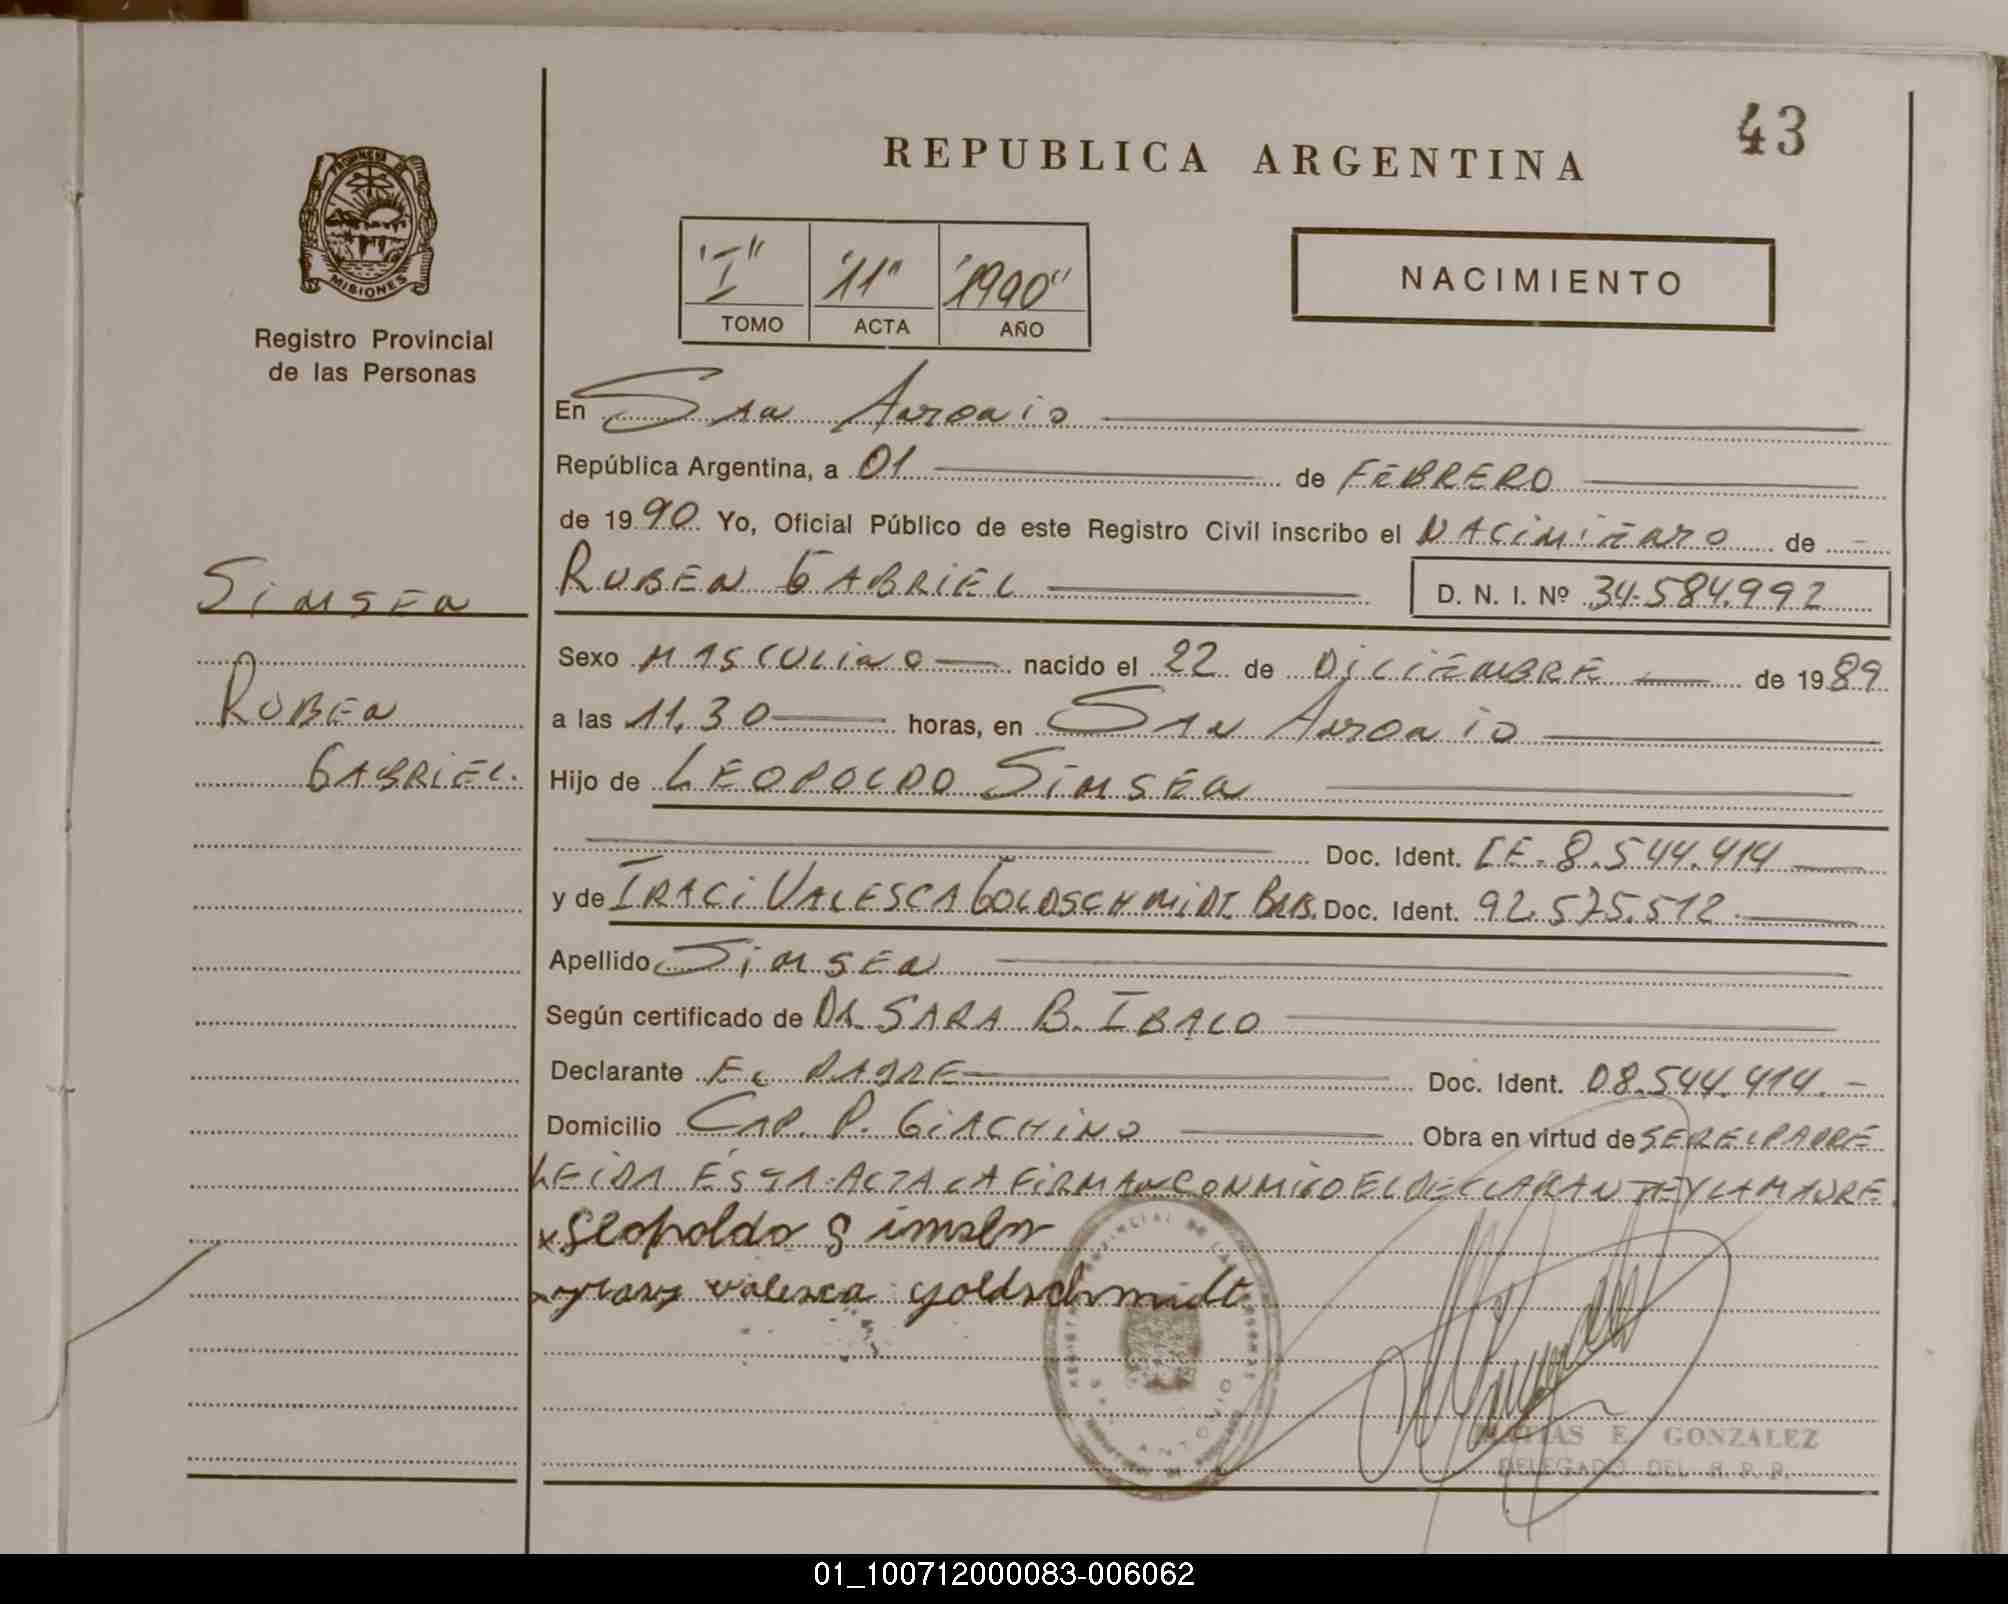 43
REPUBLICA ARGENTINA
PROVINCIA
MISIONES
Registro Provincial
de las Personas
"I" "11" "1990"
TOMO ACTA AÑO
NACIMIENTO
En San Antonio
República Argentina, a 01 de FEBRERO
de 1990 Yo, Oficial Público de este Registro Civil inscribo el NACIMIENTO de
RUBEN GABRIEL D. N. I. Nº 34.584.992
SIMSEN
RUBEN
GABRIEL.
Sexo MASCULINO nacido el 22 de DICIEMBRE de 1989
a las 11,30 horas, en SAN ANTONIO
Hijo de LEOPOLDO SIMSEN
Doc. Ident. CE. 8.544.414
y de IRACI VALESCA GOLDSCHMIDT BRAS. Doc. Ident. 92.575.512
Apellido SIMSEN
Según certificado de DR. SARA B. IBALO
Declarante EL PADRE Doc. Ident. 08.544.414.
Domicilio CAP. P. GIACHINO Obra en virtud de SER EL PADRE
LEIDA ESTA ACTA LA FIRMAN CONMIGO EL DECLARANTE Y LA MADRE.
x Leopoldo Simsen
x yrasy valesca goldschmidt
SAN ANTONIO
MATIAS E. GONZALEZ
DELEGADO DEL R. P. P.
01_100712000083-006062